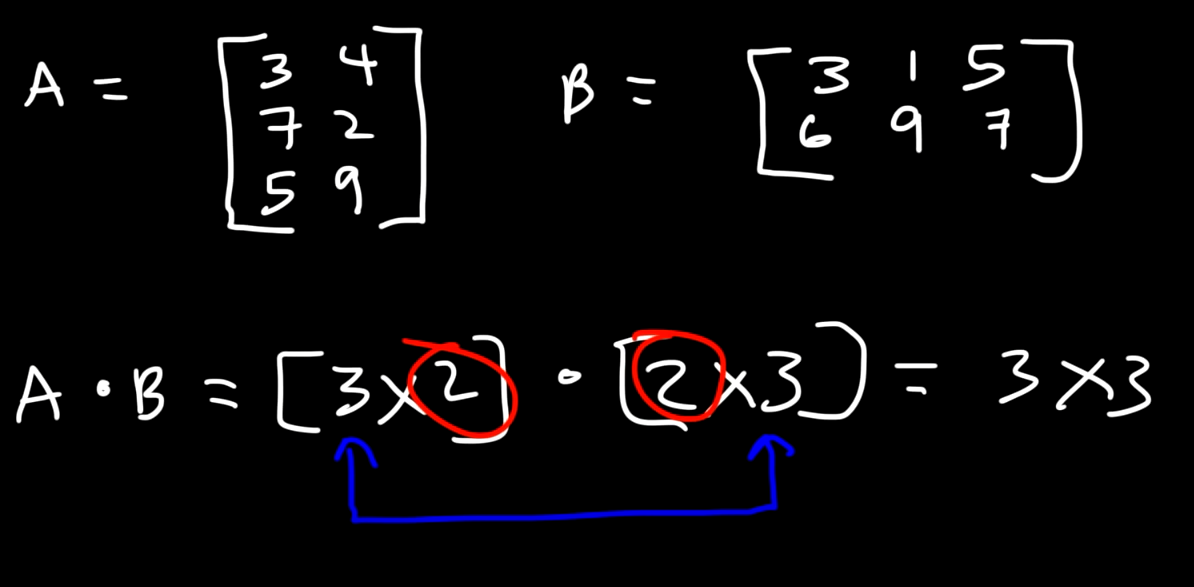 A = [3 4
7 2
5 9] B = [3 1 5
6 9 7]
A · B = [3×2] · [2×3] = 3×3